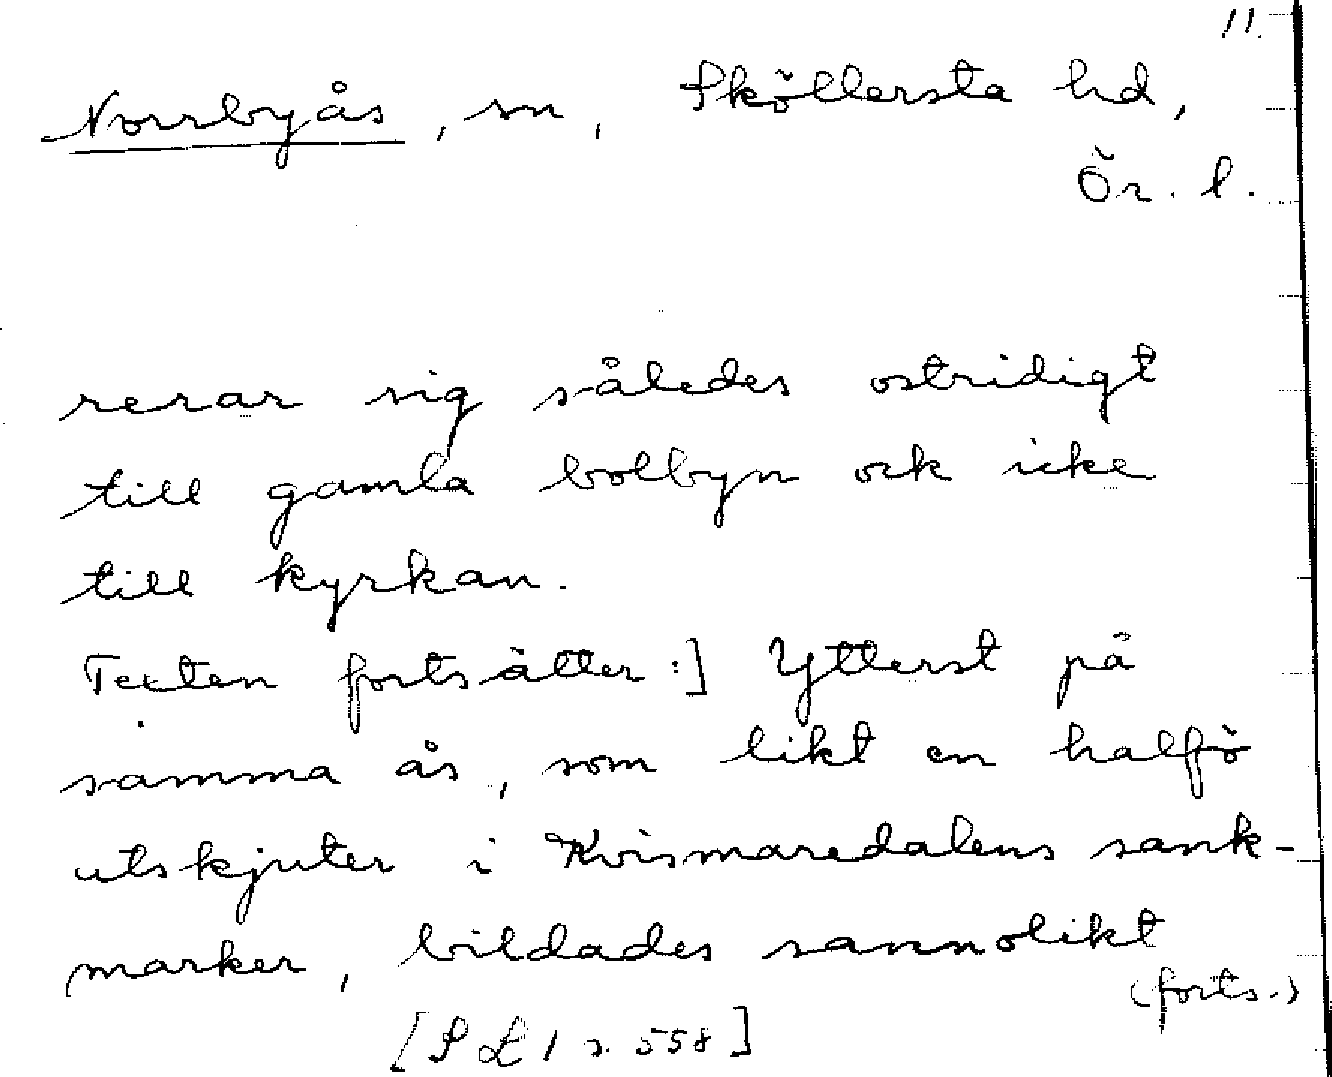 11.
Norrbyås, sn, Sköllersta hd,
Ör. l.
rerar sig således ostridigt
till gamla bolbyn ock icke
till kyrkan.
Texten fortsätter:] Ytterst på
samma ås, som likt en halfö
utskjuter i Kvismaredalens sank-
marker, bildades sannolikt
(forts.)
[S L 1 s. 558]